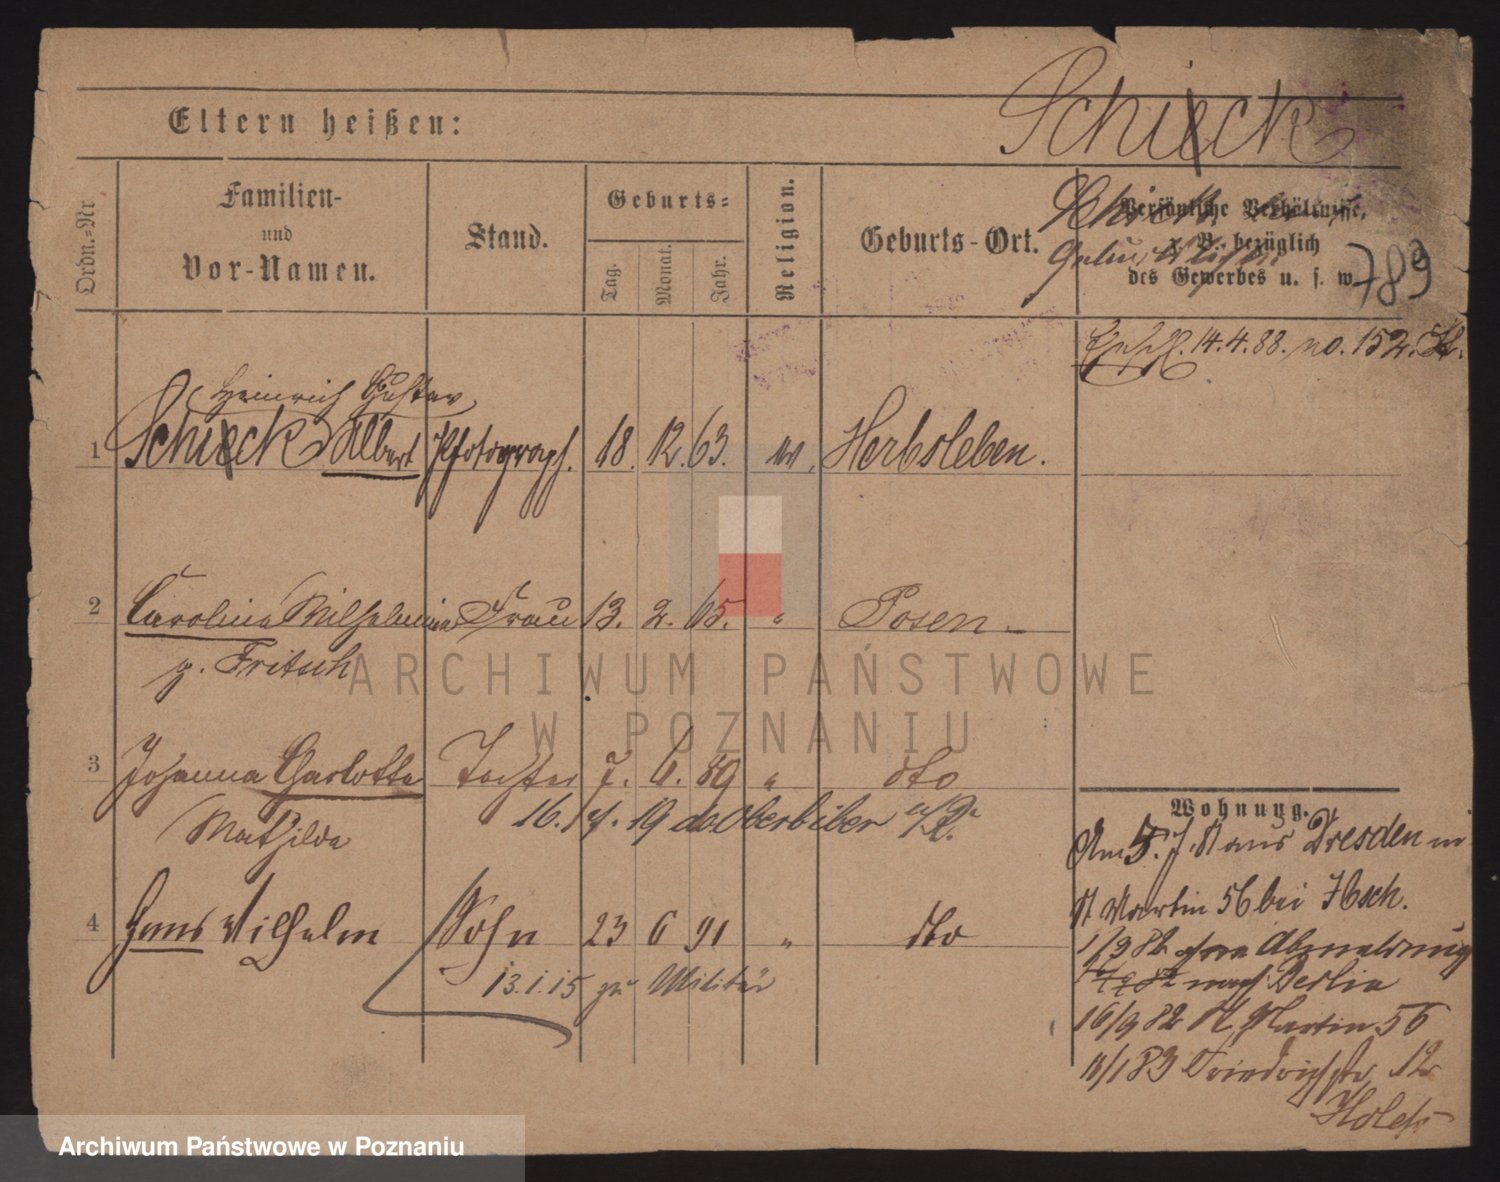 Eltern heißen:
Schieck
Ordn.-Nr
Familien-
und
Vor-Namen.
Stand.
Geburts-
Tag.
Monat.
Jahr.
Religion.
Geburts-Ort.
Persönliche Verhältnisse,
z. B. bezüglich
des Gewerbes u. s. w.
789
14.4.88. no. 152.
Heinrich Gustav
1 Schieck Albert Photograph. 18. 12. 63. Herbsleben.
2 Carolina Wilhelmine Frau 13. 2. 65. " Posen.
g. Fritsch
3 Johanna Charlotte Tochter 7. 6. 89 " dto
Mathilde
16. 4. 19 ab. Oberbiber
4 Hans Wilhelm Sohn 23 6 91 " dto
13.1.15 zu Militär
Wohnung.
Am 5. 7. aus Dresden in
St Martin 56 bei
1/9 82 Abmeldung
82 nach Berlin
16/9 82 St. Martin 56
83 Friedrichstr. 12
ARCHIWUM PAŃSTWOWE
W POZNANIU
Archiwum Państwowe w Poznaniu